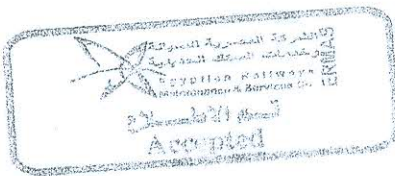 الشركة المصرية لصيانة
وخدمات السكك الحديدية
Egyptian Railways
Maintenance & Services Co.
ERMAS
تم الاطلاع
Accepted